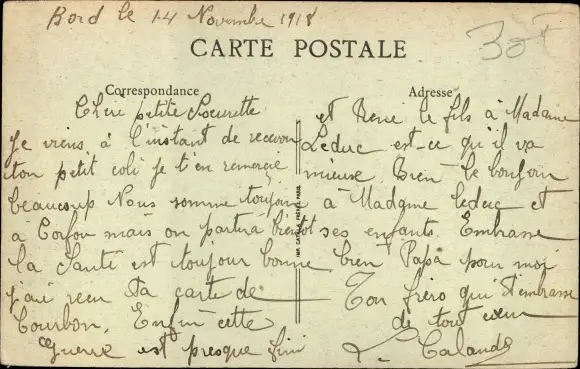 Bord le 14 Novembre 1918
30f
CARTE POSTALE
Correspondance
Adresse
Chère petite Soeurette
Je viens à l'instant de recevoir
ton petit coli je t'en remercie
beaucoup Nous somme toujour
à Corfou mais on partira bientot
la Santé est toujour bonne
j'ai recu ta carte de
Courbon. Enfin cette
guerre est presque fini
IMP. CATALA FRÈRES, PARIS
et René le fils à Madame
Leduc est-ce qu'il va
mieuse Bien le bonjour
à Madame leduc et
ses enfants. Embrasse
bien Papa pour moi
Ton frèro qui t'embrasse
de tout cœur
L. Caland